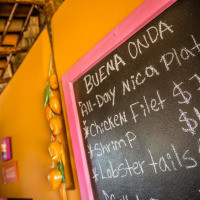 BUENA ONDA
All-Day Nica Plat
*Chicken Filet $
*Shrimp $
*Lobster tails $